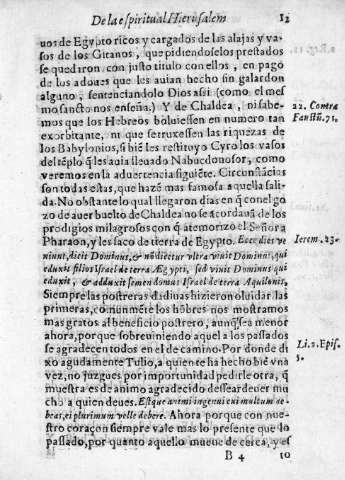 De la espiritual Hierusalem 12
uos de Egypto ricos y cargados de las alajas y va-
sos de los Gitanos, que pidiendoselos prestados
se quedaron con justo titulo con ellos, en pago
de los adoues que les auian hecho sin galardon
alguno, sentenciandolo Dios assi (como el mes
mo sancto nos enseña.) Y de Chaldea, ni sabe-
mos que los Hebreos boluiessen en numero tan
exorbitante, ni que setruxessen las riquezas de
los Babylonios, si biē les restituyo Cyro los vasos
del tēplo q̄ les auia lleuado Nabucdonosor, como
veremos en la aduertencia siguiēte. Circunstācias
son todas estas, que hazē mas famosa aquella sali-
da. No obstante lo qual llegaron dias en q̄ con el go-
zo de auer buelto de Chaldea no se acordauā de los
prodigios milagrosos con q̄ atemorizo el Señor a
Pharaon, y les saco de tierra de Egypto. Ecce dies ve
niunt, dicit Dominus, & nō dicetur vltra viuit Dominus, qui
eduxit filios Israel de terra Ægypti, sed viuit Dominus qui
eduxit, & adduxit semen domus Israel de terra Aquilonis,
Siempre las postreras dadiuas hizieron oluidar las
primeras, comunmēte los hōbres nos mostramos
mas gratos al beneficio postrero, aunq̄ sea menor
ahora, porque sobreuiniendo aquel a los passados
se agradecen todos en el de camino. Por donde di
xo agudamente Tulio, a quien te ha hecho biē vna
vez, no juzgues por importunidad pedirle otra, q̄
muestra es de animo agradecido dessear deuer mu
cho a quien deues. Est que animi ingenui cui multum de
beas, ei plurimum velle debere. Ahora porque con nue-
stro coraçon siempre vale mas lo presente que lo
passado, por quanto aquello mueue de cerca, y es
B 4 to
22. Contra
Faustū. 71.
Ierem. 23.
Li. 2. Epis.